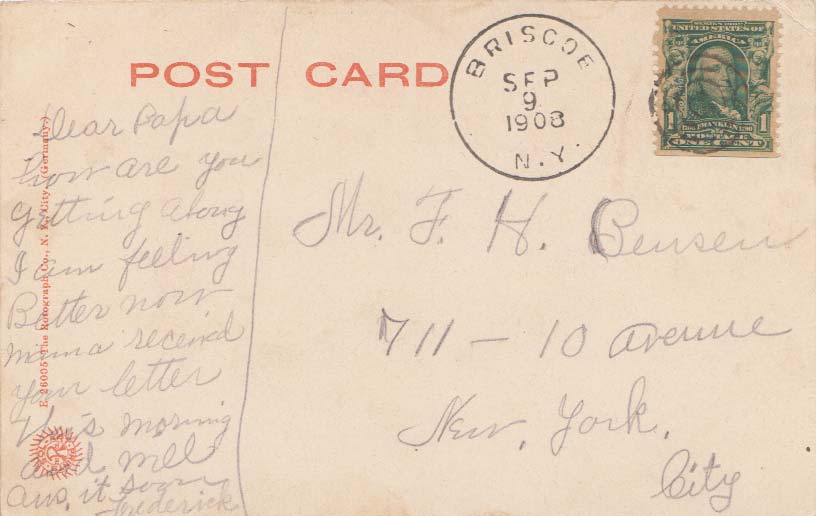 POST CARD
BRISCOE
SEP
9
1908
N.Y.
SERIES 1902
UNITED STATES OF
AMERICA
FRANKLIN
POSTAGE
1 ONE CENT 1
Dear Papa
how are you
getting along
I am feeling
Better now
mama received
your letter
this morning
and will
ans, it soon
Frederick
Mr. F. H. Bensen
711 - 10 avenue
New, York,
City
E 26005 The Rotograph Co., N. Y. City. (Germany.)